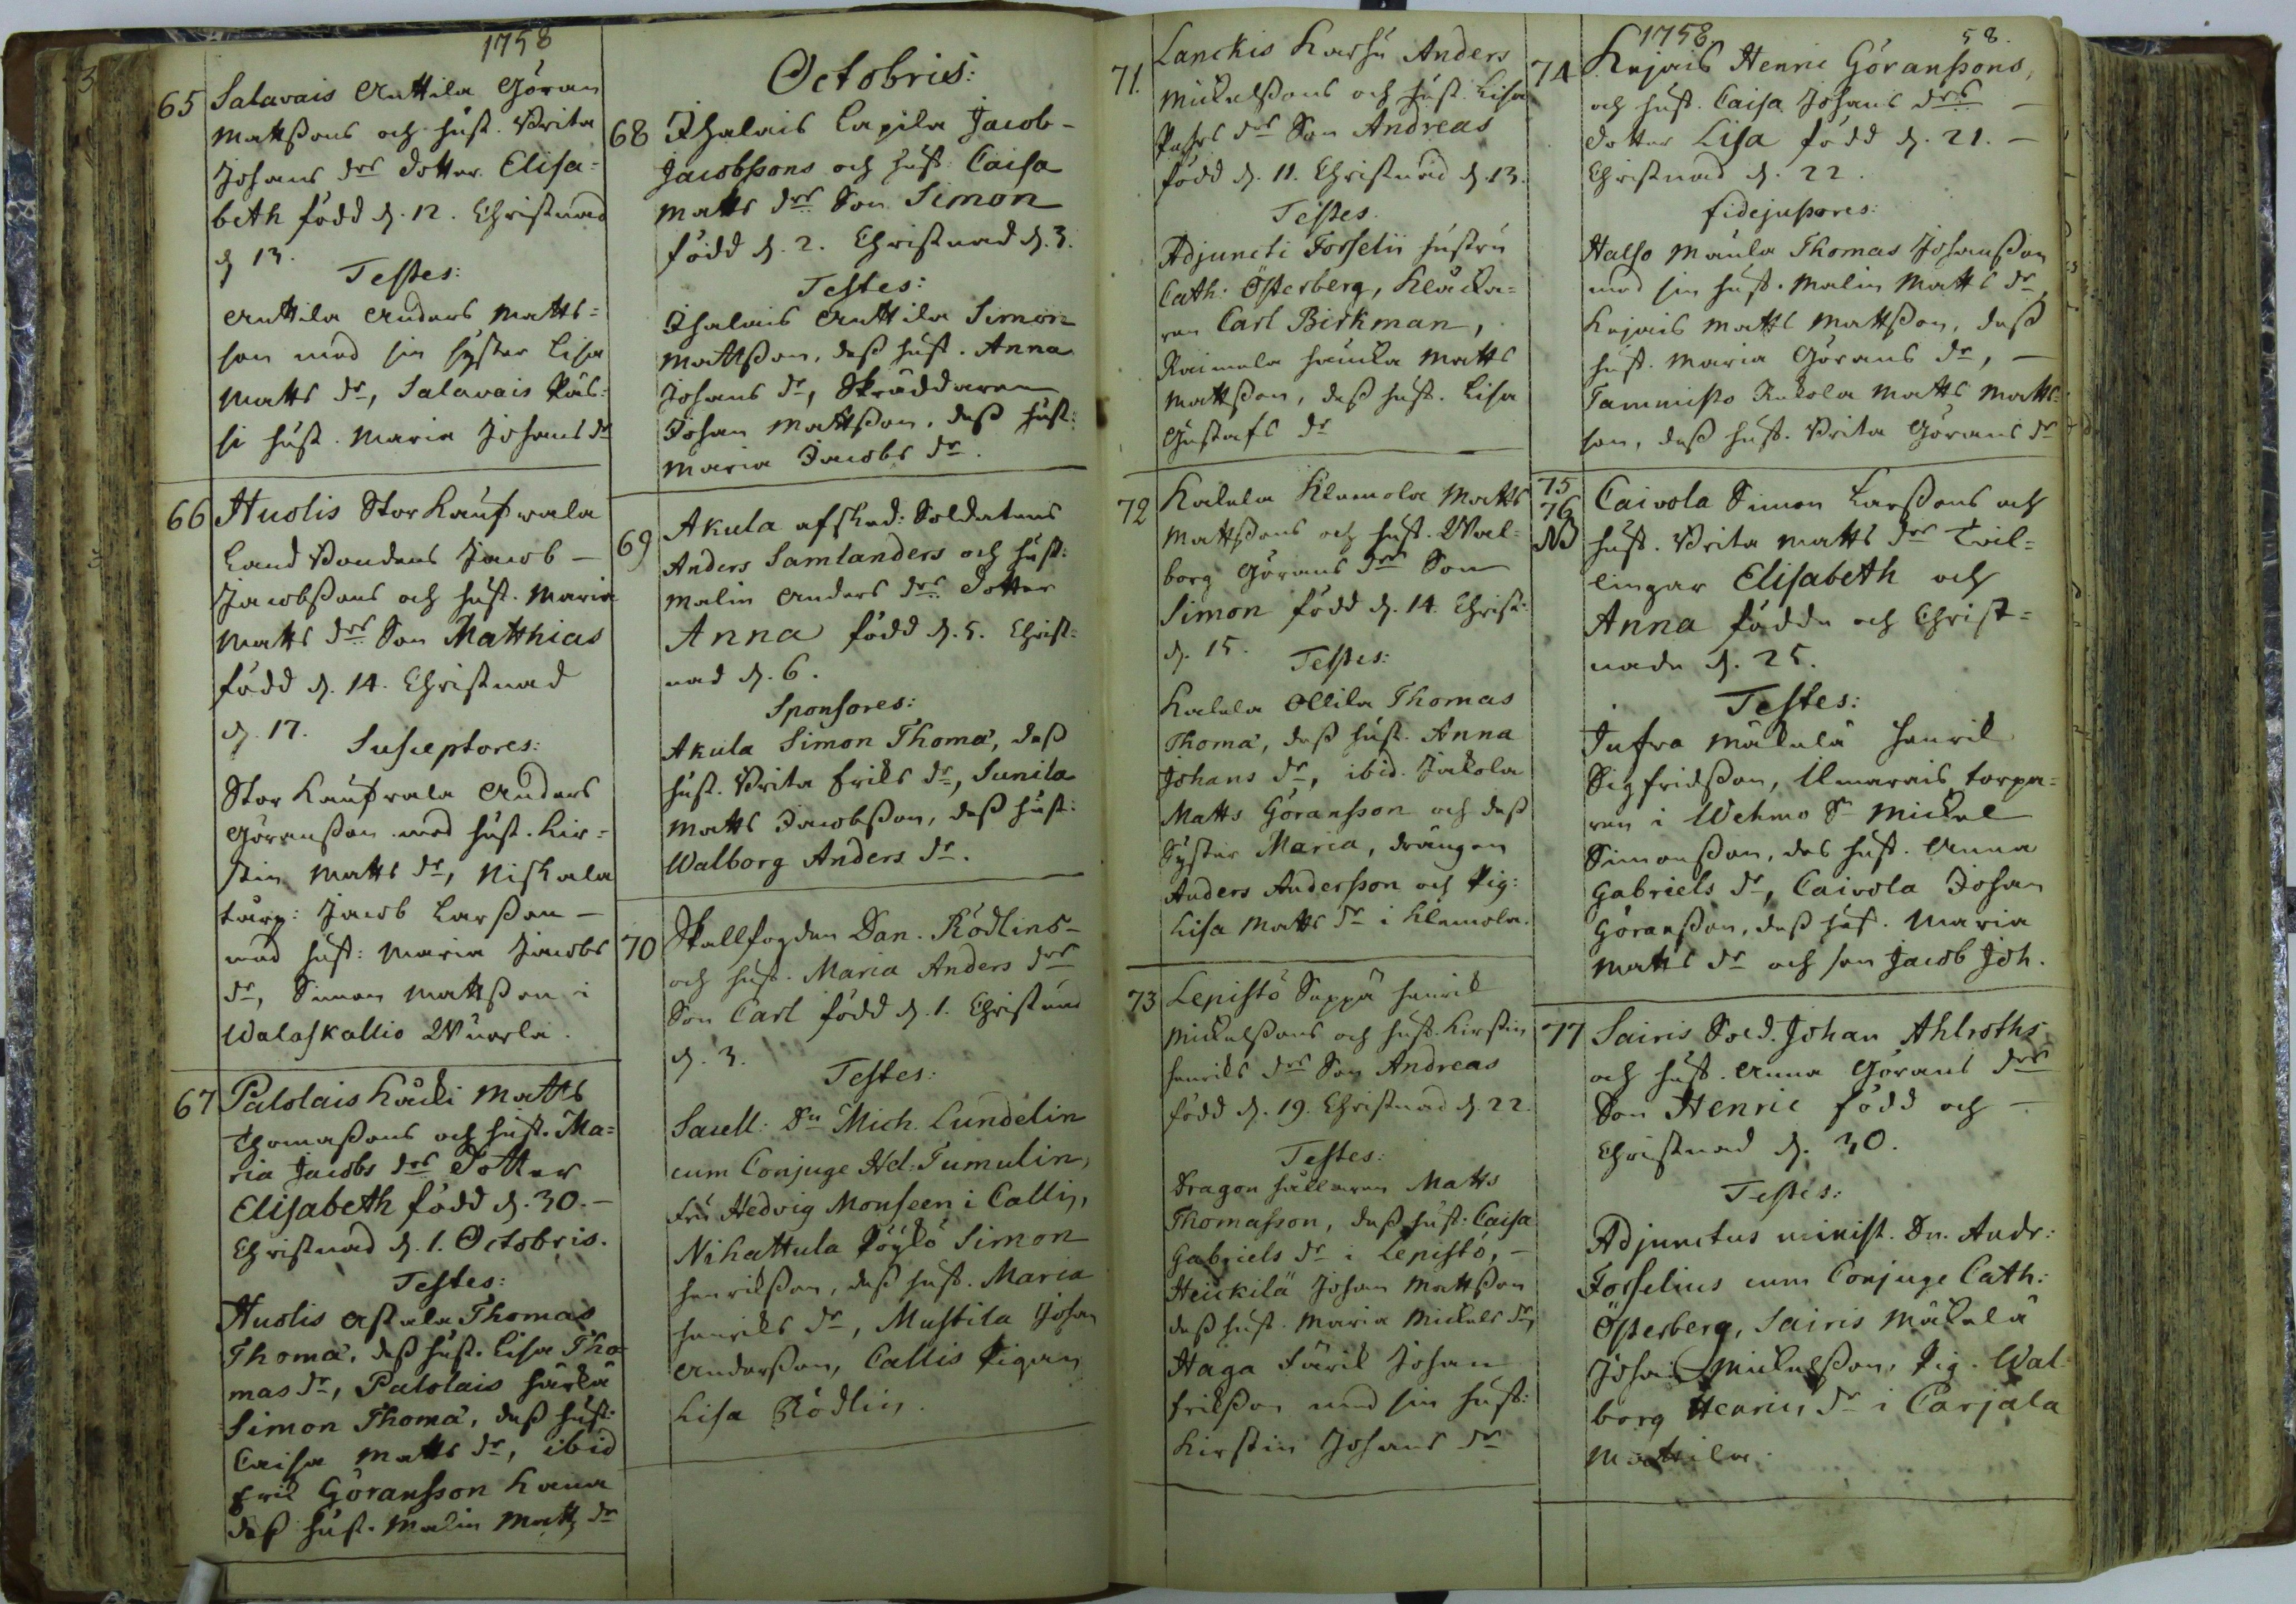 1758
65 Salavais Anttila Göran
Mattssons och hust. Brita
Johans drs dotter Elisa=
beth född d. 12. Christnad
d. 13.
Testes:
Anttila Anders Matts=
son med sin syster Lisa
Matts dr, Salavais
si hust. Maria Johans dr
66 Huolis Stor Kaufwala
Land Bondens Jacob –
Jacobssons och hust. Maria
Matts drs Son Matthias
född d. 14. Christnad
d. 17.
Susceptores:
Stor Kaufvala Anders
Göransson med hust. Kir=
stin Matts dr, Niskala
torp: Jacob Larsson –
med hust: Maria Jacobs
dr, Simon Mattsson i
Walaskallio Wuorla.
67 Palolais Kauki Matts
Thomassons och hust. Ma=
ria Jacobs drs Dotter
Elisabeth född d. 30. –
Christnad d. 1. Octobris.
Testes:
Huolis Astala Thomas
Thomæ, dess hust. Lisa Tho=
mas dr, Palolais Härkä
Simon Thomæ, dess hust:
Caisa Matts dr, ibid
Erik Göransson Kana
dess hust. Malin Matts dr
Octobris:
68 Ihalais Lapila Jacob –
Jacobssons och hust. Caisa
Matts drs Son Simon
född d. 2. Christnad d. 3.
Testes:
Ihalais Anttila Simon
Mattsson, dess hust. Anna
Johans dr, Skräddaren
Johan Mattsson, dess hust:
Maria Jacobs dr.
69 Akula afsked: Soldatens
Anders Samlanders och hust:
Malin Anders drs Dotter
Anna född d. 5. Christ=
nad d. 6.
Sponsores:
Akula Simon Thomæ, dess
hust. Brita Eriks dr, Sunila
Matts Jacobsson, dess hust:
Walborg Anders dr.
70 Skallfogden Dan. Rödlins –
och hust. Maria Anders drs
Son Carl född d. 1. Christnad
d. 3.
Testes:
Sacell: Dn Mich. Lundelin
cum Conjuge Hel: Tumulin,
Fru Hedvig Monseen i Callis,
Nihattula Pöykö Simon
Henriksson, dess hust. Maria
Henriks dr, Mustila Johan
Andersson, Callis Pigan
Lisa Rödlin.
71. Lanckis Karhu Anders
Mickelssons och hust. Lisa
Pehrs drs Son Andreas
född d. 11. Christnad d. 13.
Testes.
Adjuncti Forselii hustru
Cath: Österberg, Klåcka=
ren Carl Birkman,
Raimela Hauka Matts
Mattsson, dess hust. Lisa
Gustafs dr
72 Kalela Klemola Matts
Mattssons och hust. Wal=
borg Görans drs Son
Simon född d. 14. Christ:
d. 15.
Testes:
Kalela Ollila Thomas
Thomæ, dess hust. Anna
Johans dr, ibid. Jakola
Matts Göransson och dess
Syster Maria, drängen
Anders Andersson och Pig:
Lisa Matts dr i Klemola.
73 Lepistö Seppä Henrik
Mickelssons och hust. Kirstin
Henriks drs Son Andreas
född d. 19. Christnad d. 22.
Testes:
Dragon hållaren Matts
Thomasson, dess hust: Caisa
Gabriels dr i Lepistö, –
Heickilä Johan Mattsson
dess hust. Maria Mickels dr,
Haga Färik Johan
Eriksson med sin hust:
Kirstin Johans dr
1758. 58.
74 Kejais Henric Göranssons,
och hust. Caisa Johans drs –
dotter Lisa född d. 21. –
Christnad d. 22.
fidejussores:
Halso Maula Thomas Johansson
med sin hust. Malin Matts dr
Kejais Matts Mattsson, dess
hust. Maria Görans dr, –
Tammisto Matts Matts=
son, dess hust. Brita Görans dr
75
76
NB
Caivola Simon Larssons och
hust. Brita Matts drs Twil=
lingar Elisabeth och
Anna födde och Christ=
nade d. 25.
Testes:
Jufra Mäkelä Henrik
Sigfridsson, Ilmarais torpa=
ren i Wehmo Sn Mickel
Simonsson, des hust. Anna
Gabriels dr, Caivola Johan
Göransson, dess hust. Maria
Matts dr och son Jacob Joh.
77 Sairis Sold. Johan Ahlroths
och hust. Anna Görans drs
Son Henric född och –
Christnad d. 30.
Testes:
Adjunctus minist. Dn. Andr:
Forselius cum Conjuge Cath:
Österberg, Sairis Mäkelä
Johan Mickelsson, Pig. Wal=
borg Henrics dr i Carjala
Mattila.